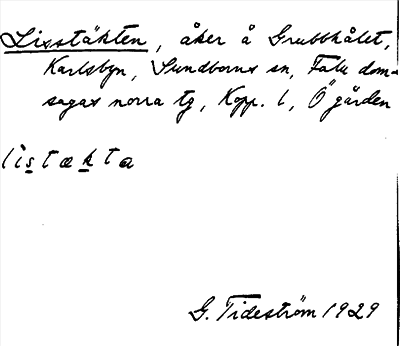 Lisstäkten, åker å Grubbhålet,
Karlsbyn, Sundborns sn, Falu dom-
sagas norra tg, Kopp. l, Ögården
lìstækta
G. Tideström 1929